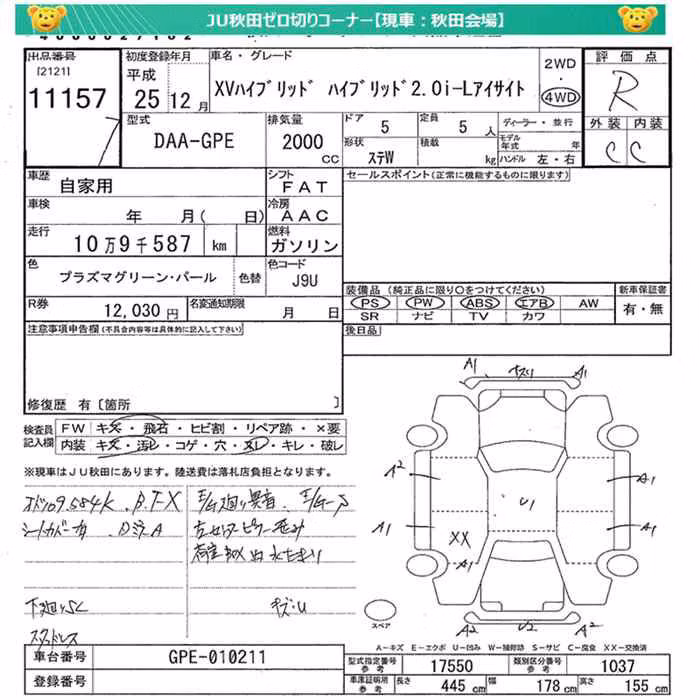 JU秋田ゼロ切りコーナー【現車：秋田会場】
出品番号 [2121] 11157
初度登録年月 平成 25 12月
車名・グレード XVハイブリッド ハイブリッド2.0i-Lアイサイト
2WD ・ 4WD
評価点 R
外装 内装
C C
型式 DAA-GPE
排気量 2000 CC
ドア 5
定員 5 人
形状 ステW
積載 kg
ディーラー・並行
モデル年式 年
ハンドル 左・右
車歴 自家用
シフト FAT
セールスポイント(正常に機能するものに限ります)
車検 年 月( 日)
冷房 AAC
走行 10万9千587 km
燃料 ガソリン
色 プラズマグリーン・パール 色替
色コード J9U
R券 12,030円
名変通知期限 月 日
装備品 (純正品に限り○をつけてください) 新車保証書
PS PW ABS エアB AW 有・無
SR ナビ TV カワ
注意事項申告欄(不具合内容等は具体的に記入して下さい)
後日品
修復歴 有〔箇所 〕
検査員記入欄
FW キズ・飛石・ヒビ割・リペア跡・×要
内装 キズ・汚レ・コゲ・穴・スレ・キレ・破レ
※現車はJU秋田にあります。陸送費は落札店負担となります。
109.584K
シートカバー有
下廻りSC
スタッドレス
キズ・U
A1 A1
A2 A1
U1
A1 XX A1
A1
A2 U2 A2
スペア
A－キズ E－エクボ U－凹み W－補修跡 S－サビ C－腐食 XX－交換済
車台番号 GPE-010211
登録番号
型式指定番号 参考 17550
類別区分番号 参考 1037
車庫証明所 参考 長さ 445 cm 幅 178 cm 高さ 155 cm